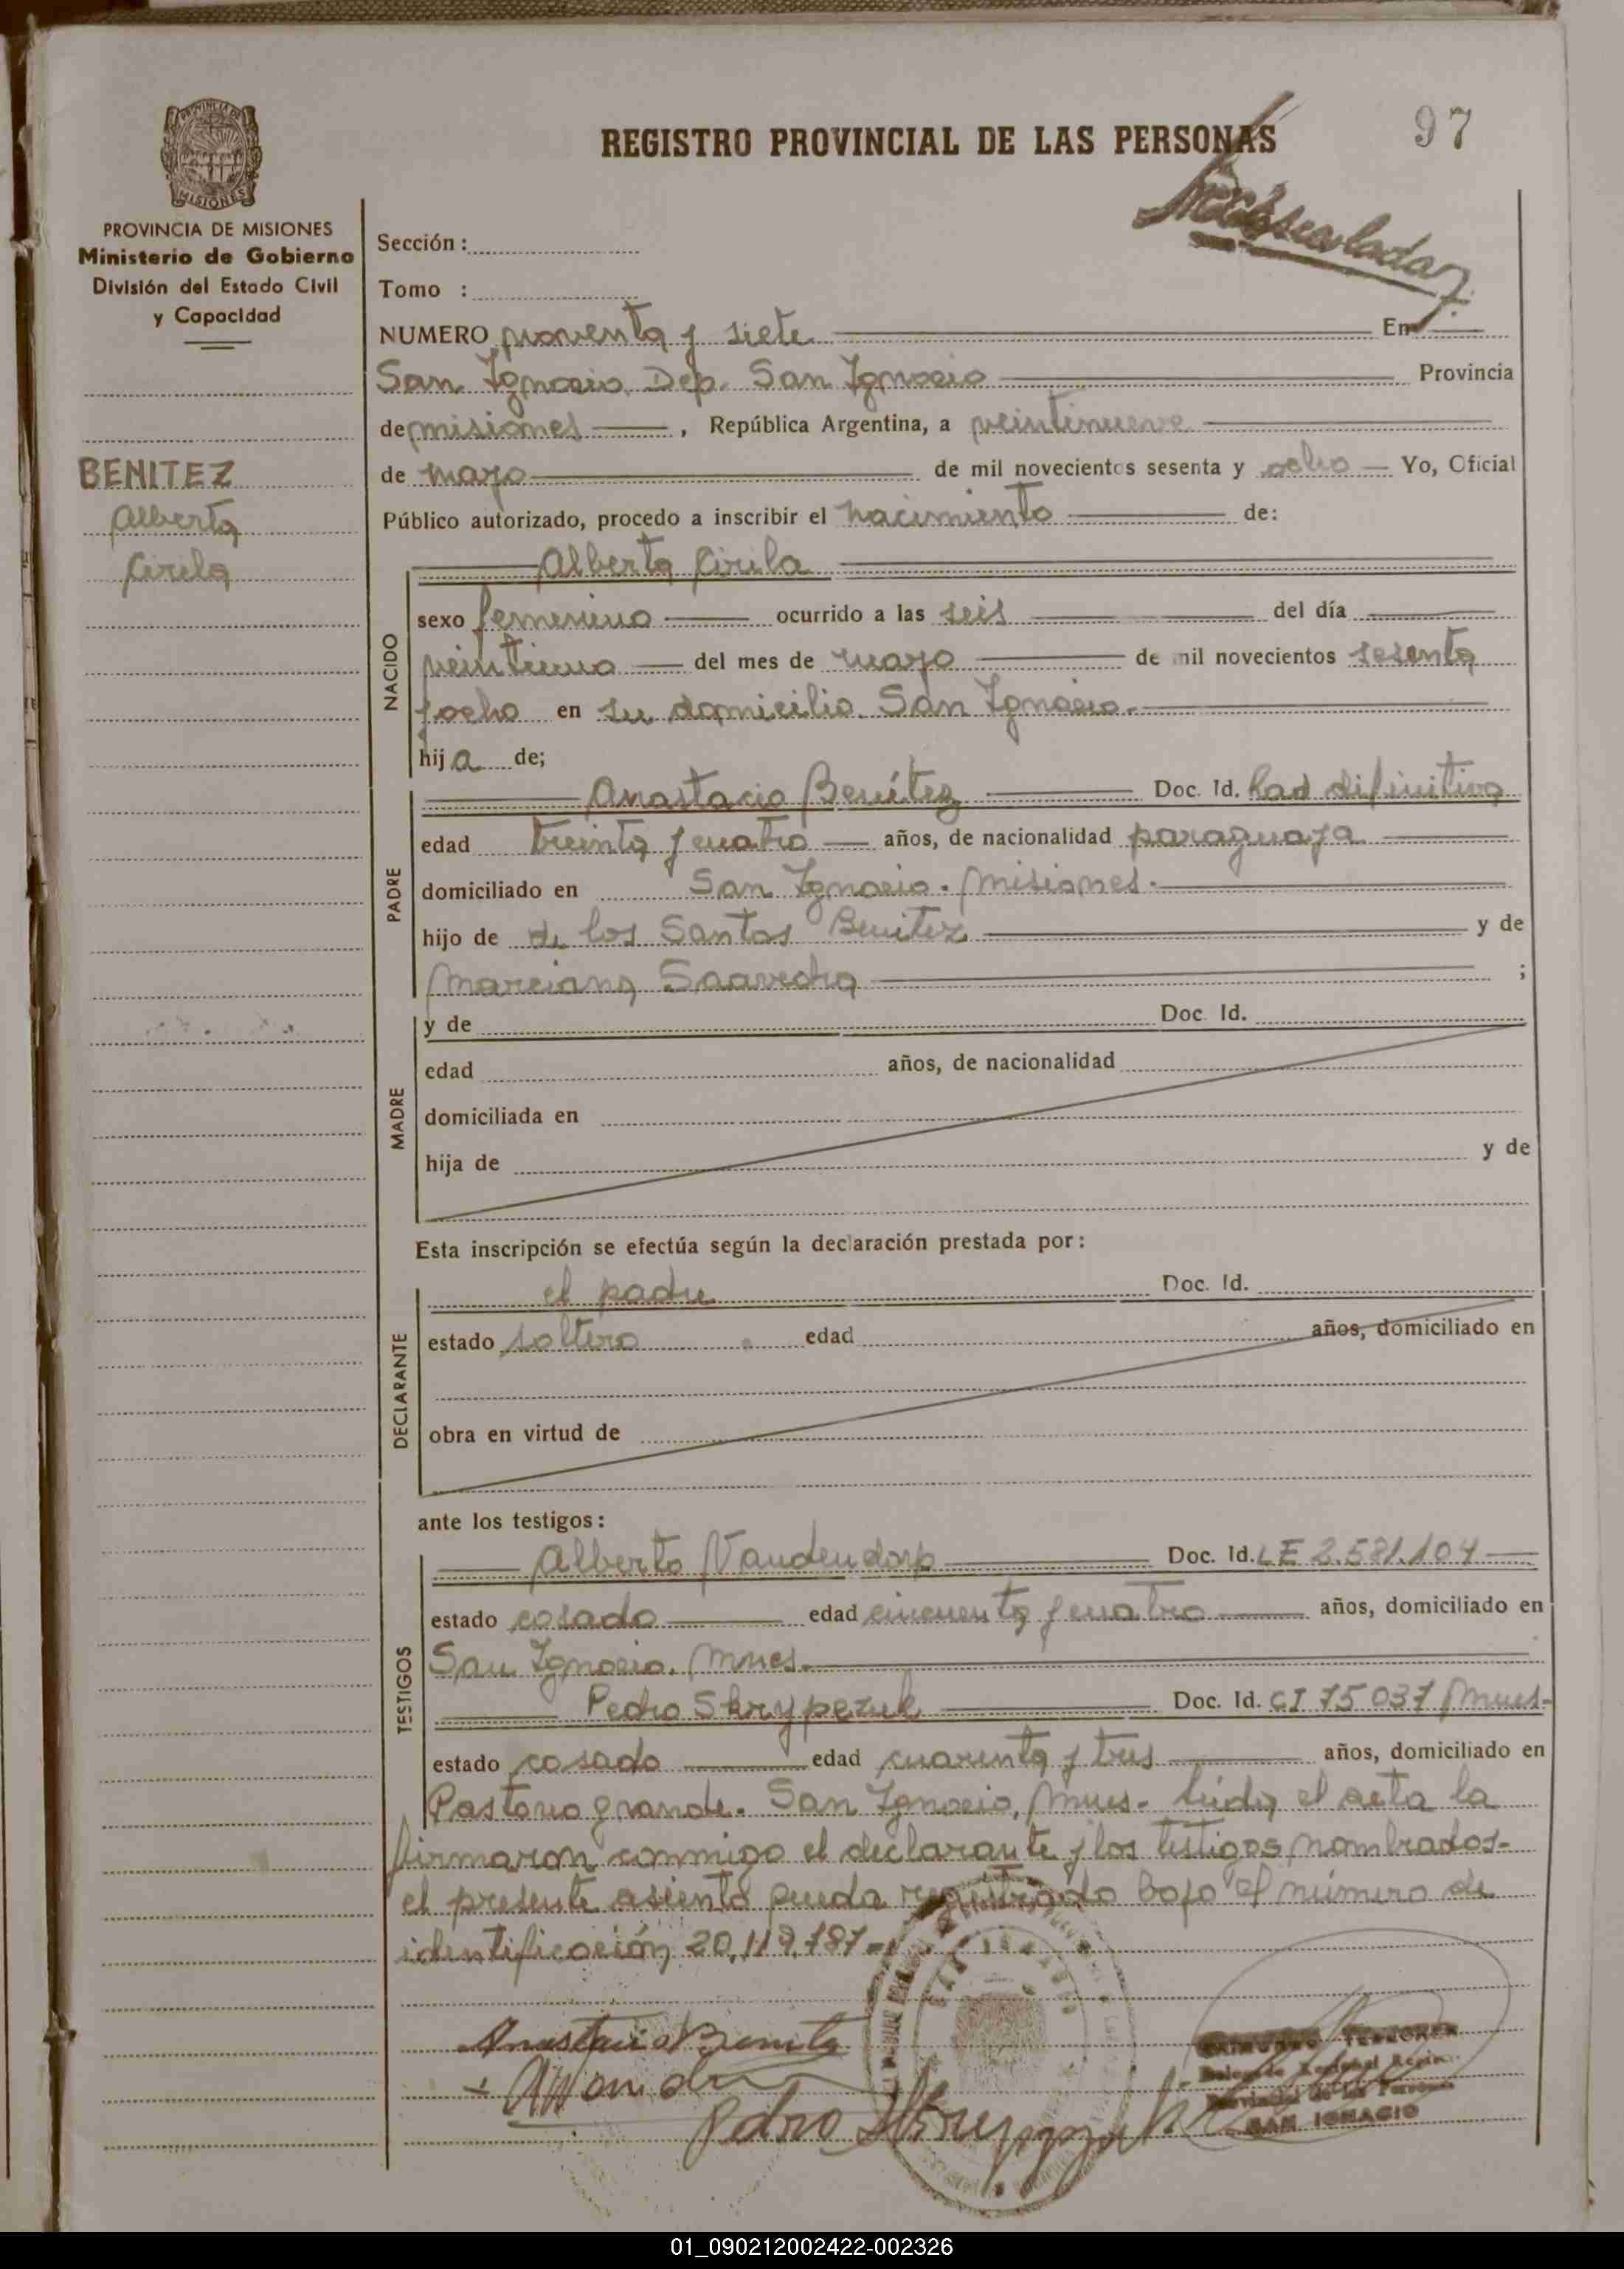 97
REGISTRO PROVINCIAL DE LAS PERSONAS
PROVINCIA DE
MISIONES
PROVINCIA DE MISIONES
Ministerio de Gobierno
División del Estado Civil
y Capacidad
BENITEZ
Alberta
Cirila
Sección :
Tomo :
NUMERO noventa y siete En
San Ignacio Dep. San Ignacio Provincia
de misiones , República Argentina, a veintinueve
de mayo de mil novecientos sesenta y ocho Yo, Oficial
Público autorizado, procedo a inscribir el nacimiento de:
NACIDO
Alberta Cirila
sexo femenino ocurrido a las seis del día
veintiuno del mes de mayo de mil novecientos sesenta
y ocho en su domicilio San Ignacio.
hija de;
PADRE
Anastacio Benítez Doc. Id. Rad definitiva
edad treinta y cuatro años, de nacionalidad paraguaya
domiciliado en San Ignacio. Misiones.
hijo de de los Santos Benitez y de
Marciana Saavedra ;
MADRE
y de Doc. Id.
edad años, de nacionalidad
domiciliada en
hija de y de
Esta inscripción se efectúa según la declaración prestada por:
DECLARANTE
el padre Doc. Id.
estado soltero edad años, domiciliado en
obra en virtud de
ante los testigos:
TESTIGOS
Alberto Vandendorp Doc. Id. LE 2.581.104
estado casado edad cincuenta y cuatro años, domiciliado en
San Ignacio. Mnes.
Pedro Skrypczuk Doc. Id. CI 75037 Mnes-
estado casado edad cuarenta y tres años, domiciliado en
Pastoreo grande. San Ignacio, Mnes- Leída el acta la
firmaron conmigo el declarante y los testigos nombrados-
el presente asiento queda registrado bajo el número de
identificación 20.119.787-
Anastacio Benitez
Pedro Skrypczuk
SAN IGNACIO
01_090212002422-002326